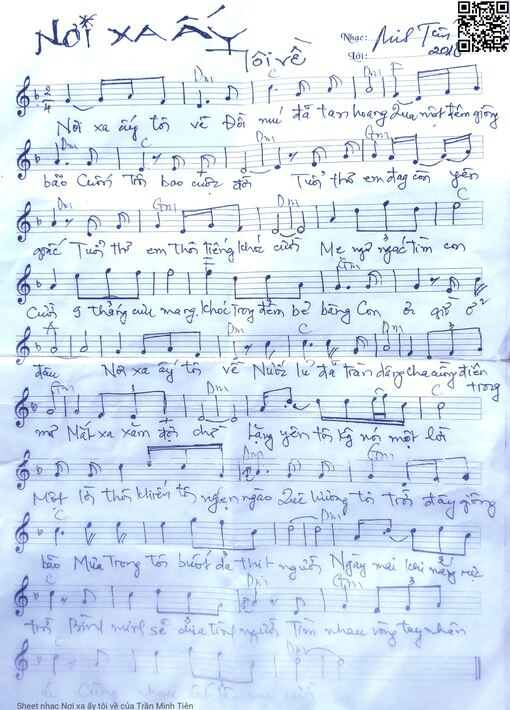 NƠI XA ẤY
Tôi về
Nhạc: Minh Tiên
Lời: 2016
Dm C Dm F
Nơi xa ấy tôi về Đồi núi đã tan hoang Qua một đêm giông
Dm C Dm Gm
bão Cuốn Tôi bao cuộc đời Tuổi thơ em đang còn yên
Dm Gm Dm C
giấc Tuổi thơ em Thôi tiếng khóc cười Mẹ ngơ ngác tìm con
F Gm
Cười 9 tháng cưu mang khóc trong đêm bẽ bàng Con ơi giờ ở
A Dm C Dm
đâu Nơi xa ấy tôi về Nước lũ đã tràn dâng cha cùng điên
trong
Gm Dm C
mơ Mất xa xăm đợi chờ Lặng yên tôi kg nói một lời
Dm Gm
Một lời thôi khiến tôi nghẹn ngào Quê hương tôi trời đầy giông
C Dm
bão Mưa Trong tôi buốt đá thịt người Ngày mai khi nắng
C Dm Gm
trời Bình minh sẽ đưa tình người Tìm nhau vòng tay nhân
C Dm
ái Cùng nhau
Sheet nhạc Nơi xa ấy tôi về của Trần Minh Tiên